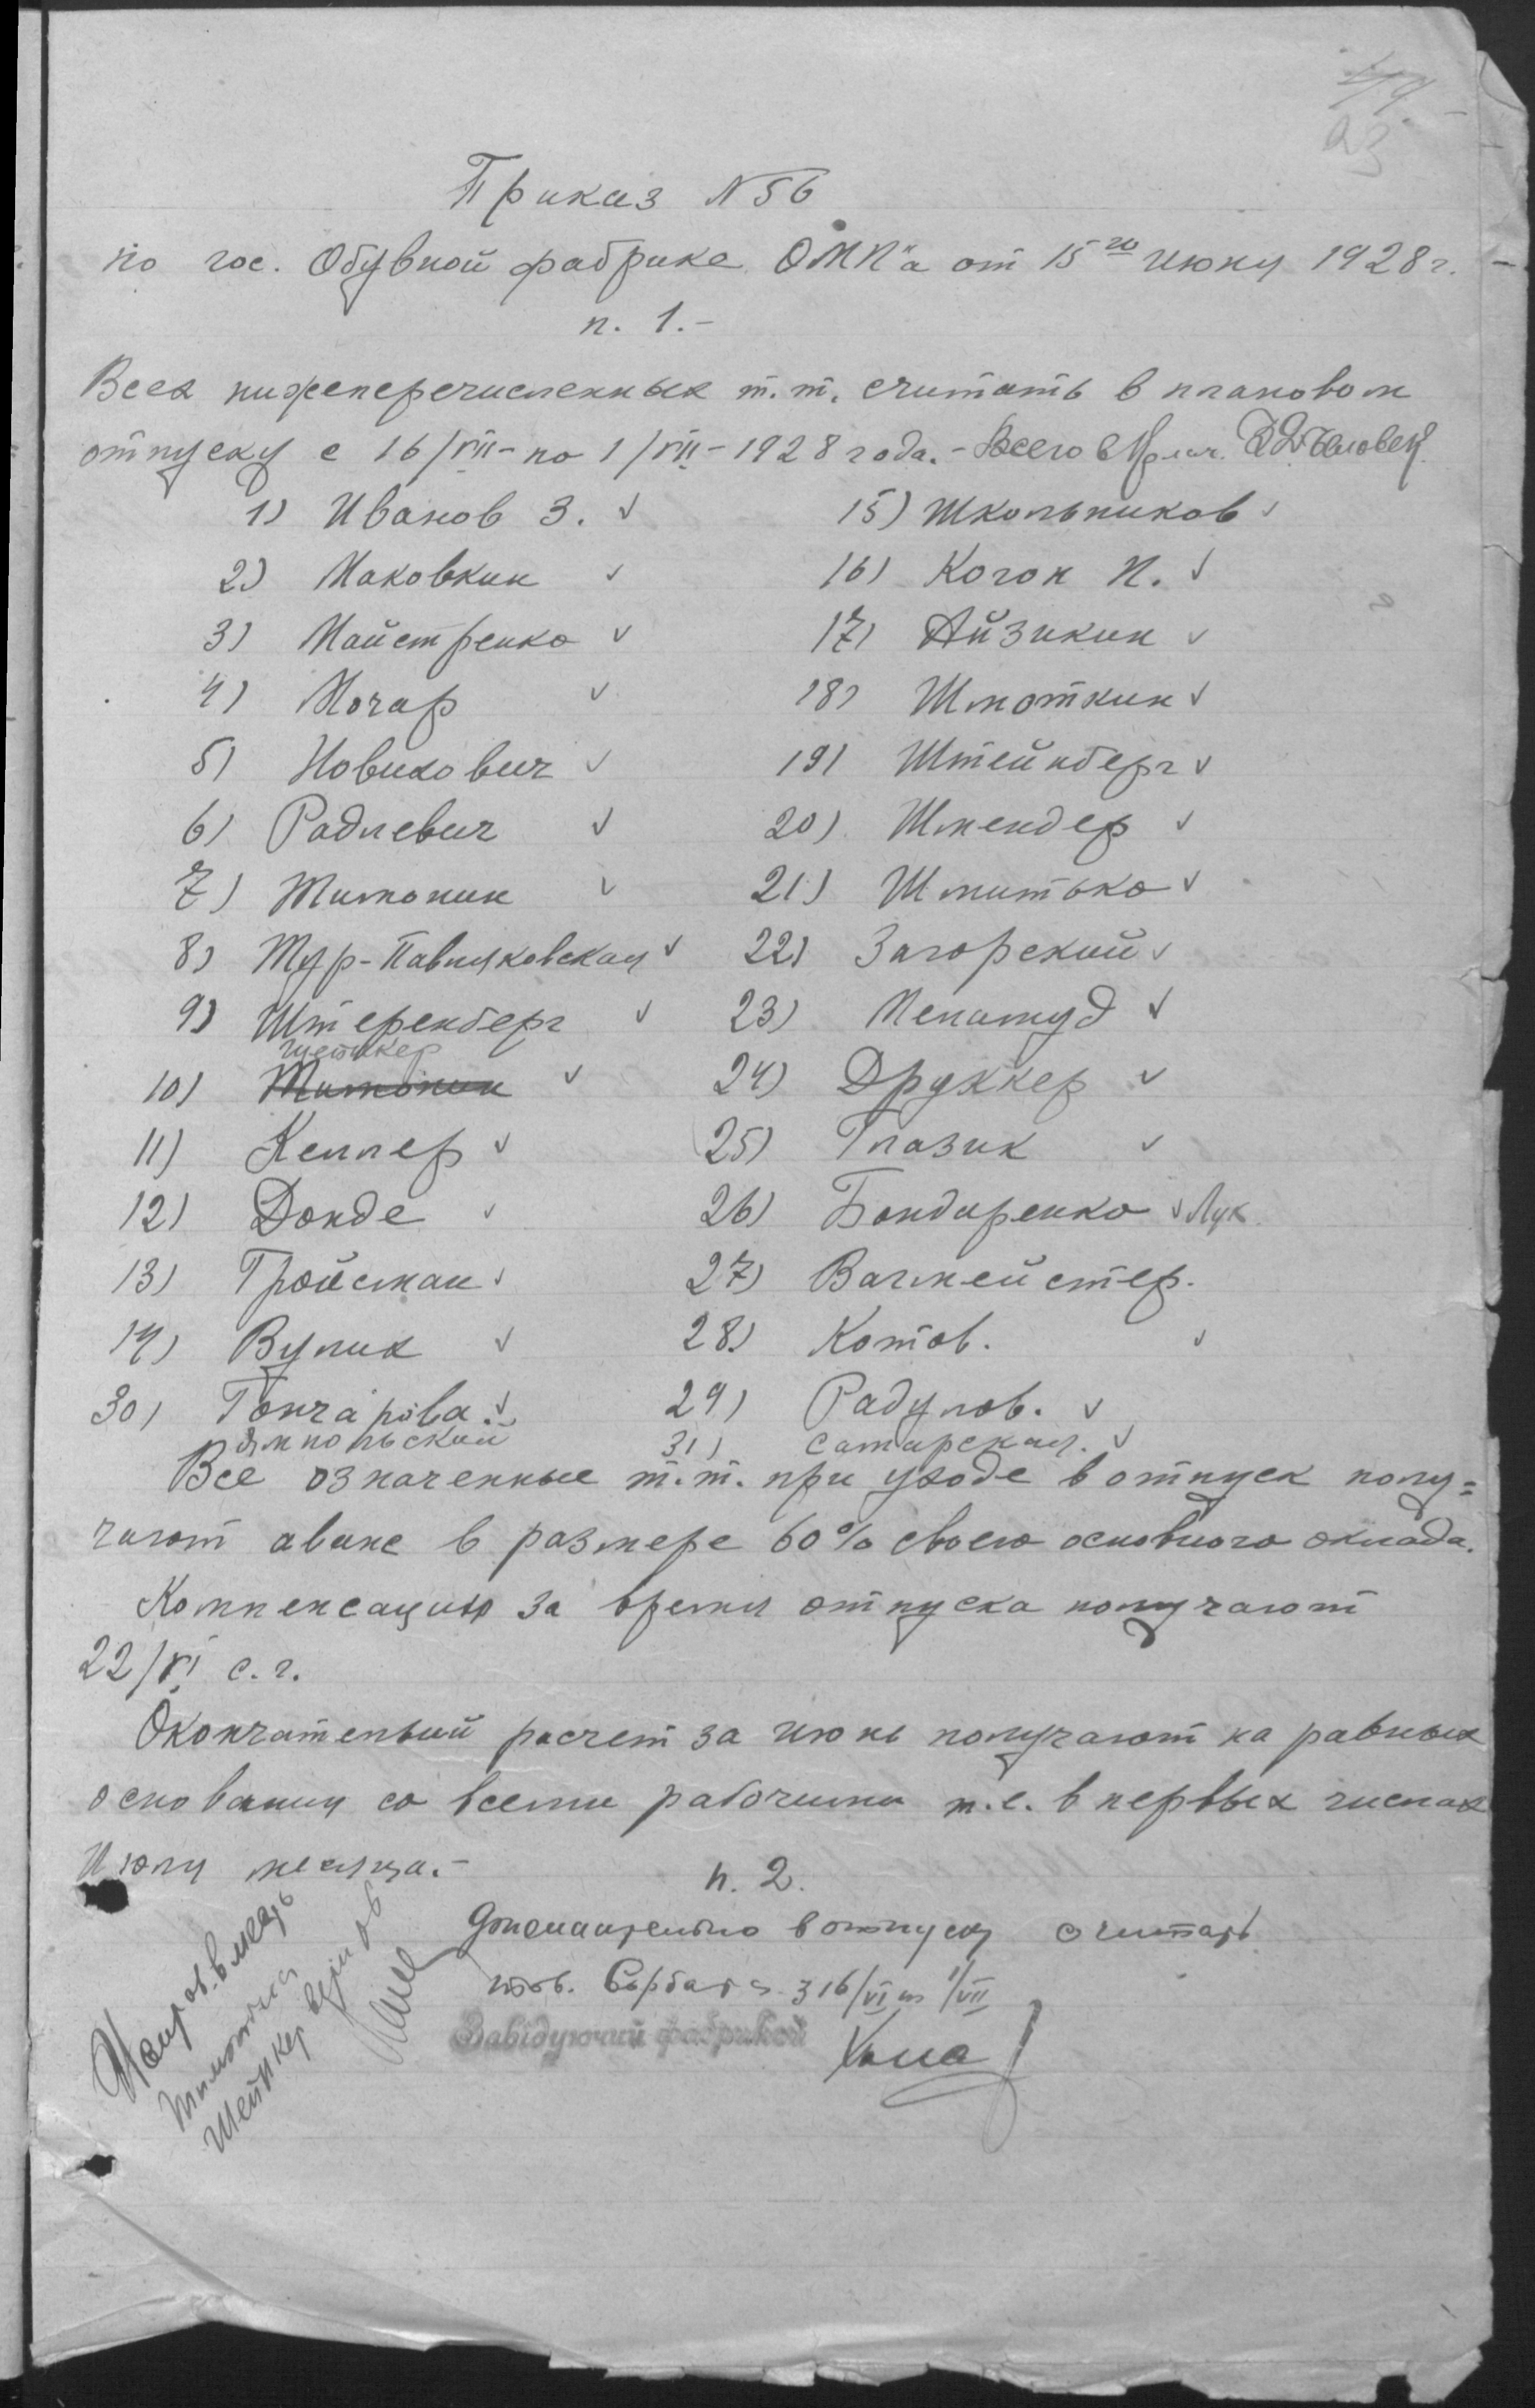 23
Приказ N 56
по гос. Обувной фабрике ОМП"а от 15го июня 1928 г.
п. 1.-
Всех нижеперечисленных т.т. считать в плановом
отпуску с 16/VII - по 1/VII - 1928 года. - Всего человек
1) Иванов З.
2) Маковкин
3) Майстренко
4) Мочар
5) Новикович
6) Радлевич
7) Тимонин
8) Тур-Павляковская
9) Штеренберг
Шейнкер
10) Тимонин
11) Келлер
12) Донде
13) Тройсман
14) Вулих
30) Гончарова.
Ямпольский
15) Школьников
16) Коган И.
17) Айзикин
18) Шмоткин
19) Штейнберг
20) Шмендер
21) Шмитько
22) Загорский
23) Меламуд
24) Друккер
25) Глазик
26) Бондаренко Лук
27) Вагмейстер.
28) Котов.
29) Радулов.
31) Самарская.
Все означенные т.т. при уходе в отпуск полу=
чают аванс в размере 60% своего основного оклада.
Компенсацию за время отпуска получают
22/VI с.г.
Окончательный расчет за июнь получают на равных
основания со всеми рабочими т.е. в первых числах
Июля месяца.-
п. 2.
Дополнительно в отпуску считать
тов. Сербага з 16/VI по 1/VII
Завідуючий фабрикой
Шейнкер